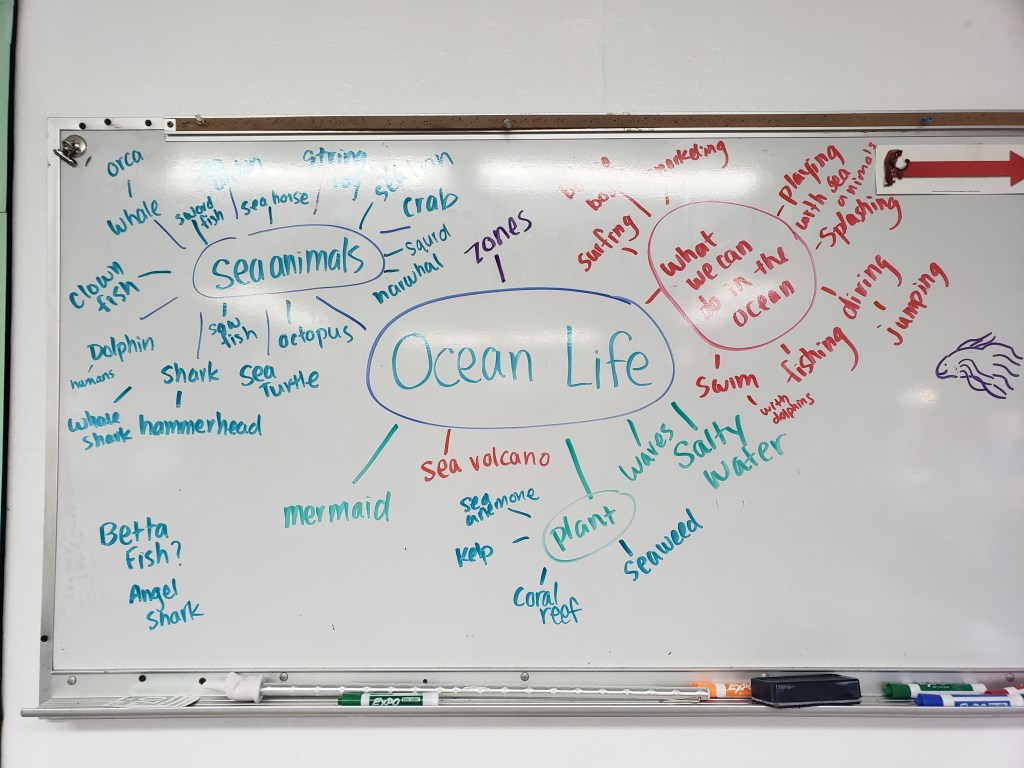 orca
whale
sword
fish
sea horse
string
ray
sea lion
crab
squid
narwhal
clown
fish
sea animals
Dolphin
humans
saw
fish
octopus
shark
sea
Turtle
whale
shark
hammerhead
Betta
Fish?
Angel
shark
zones
Ocean Life
mermaid
sea volcano
waves
Salty
Water
plant
sea
anemone
Kelp
coral
reef
seaweed
What
we can
do in the
ocean
surfing
playing
with sea
animals
splashing
diving
jumping
fishing
swim
with
dolphins
EXPO